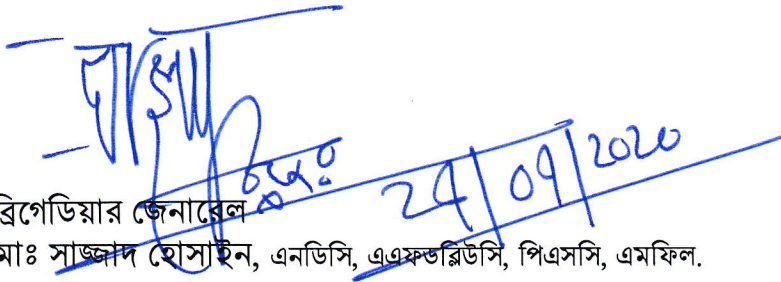 ২৭/০৭/২০২০
ব্রিগেডিয়ার জেনারেল
মোঃ সাজ্জাদ হোসাইন, এনডিসি, এএফডব্লিউসি, পিএসসি, এমফিল.